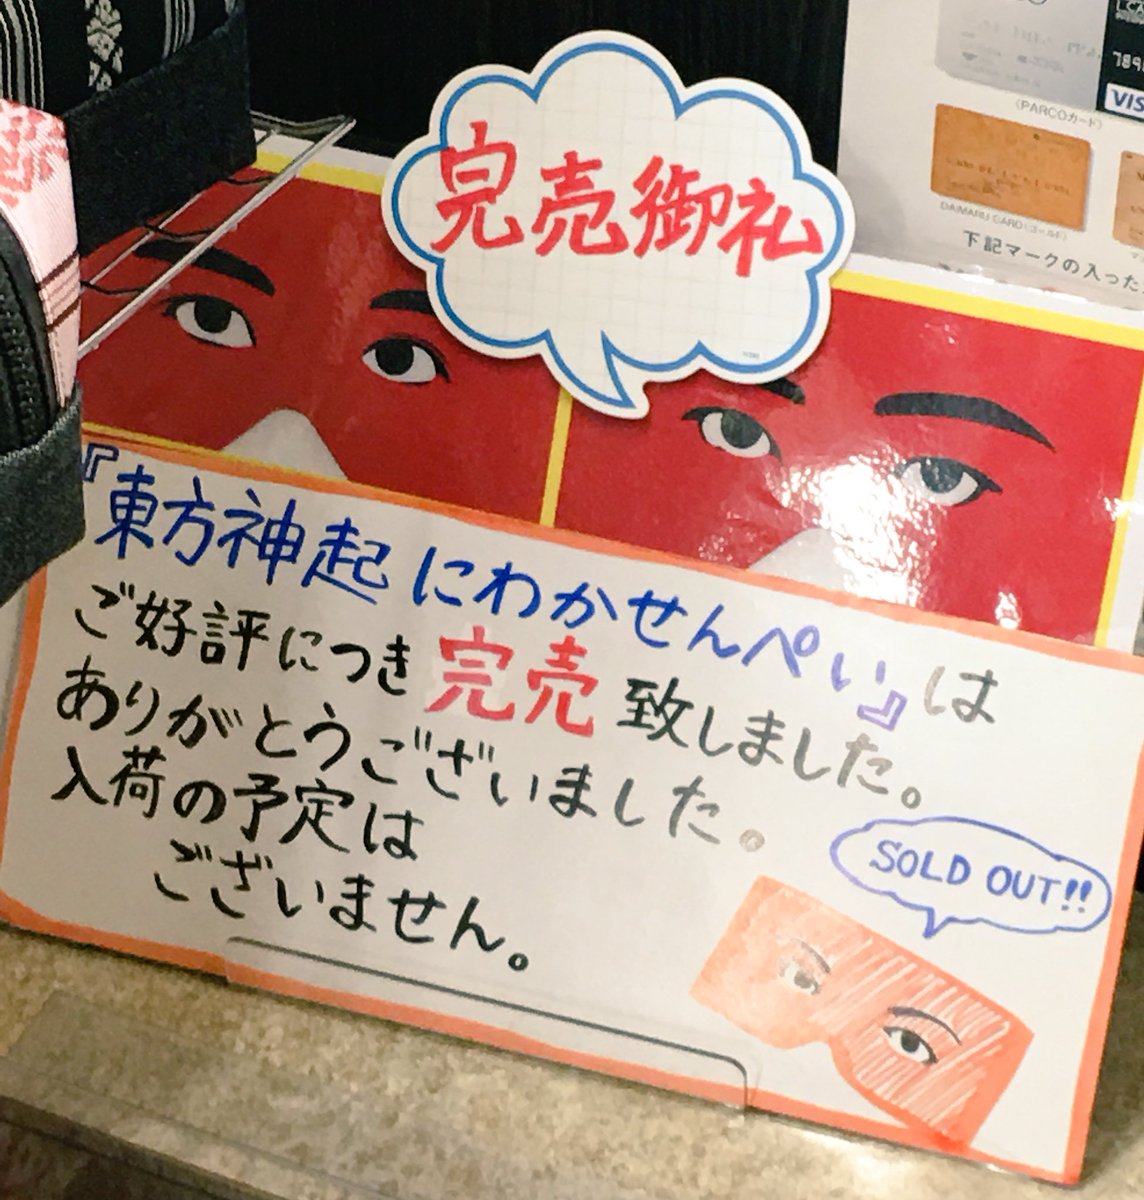 完売御礼
『東方神起にわかせんぺい』は
ご好評につき完売致しました。
ありがとうございました。
入荷の予定は
ございません。
SOLD OUT!!
VIS
(PARCOカード)
DAIMARU CARD(ゴールド)
下記マークの入った